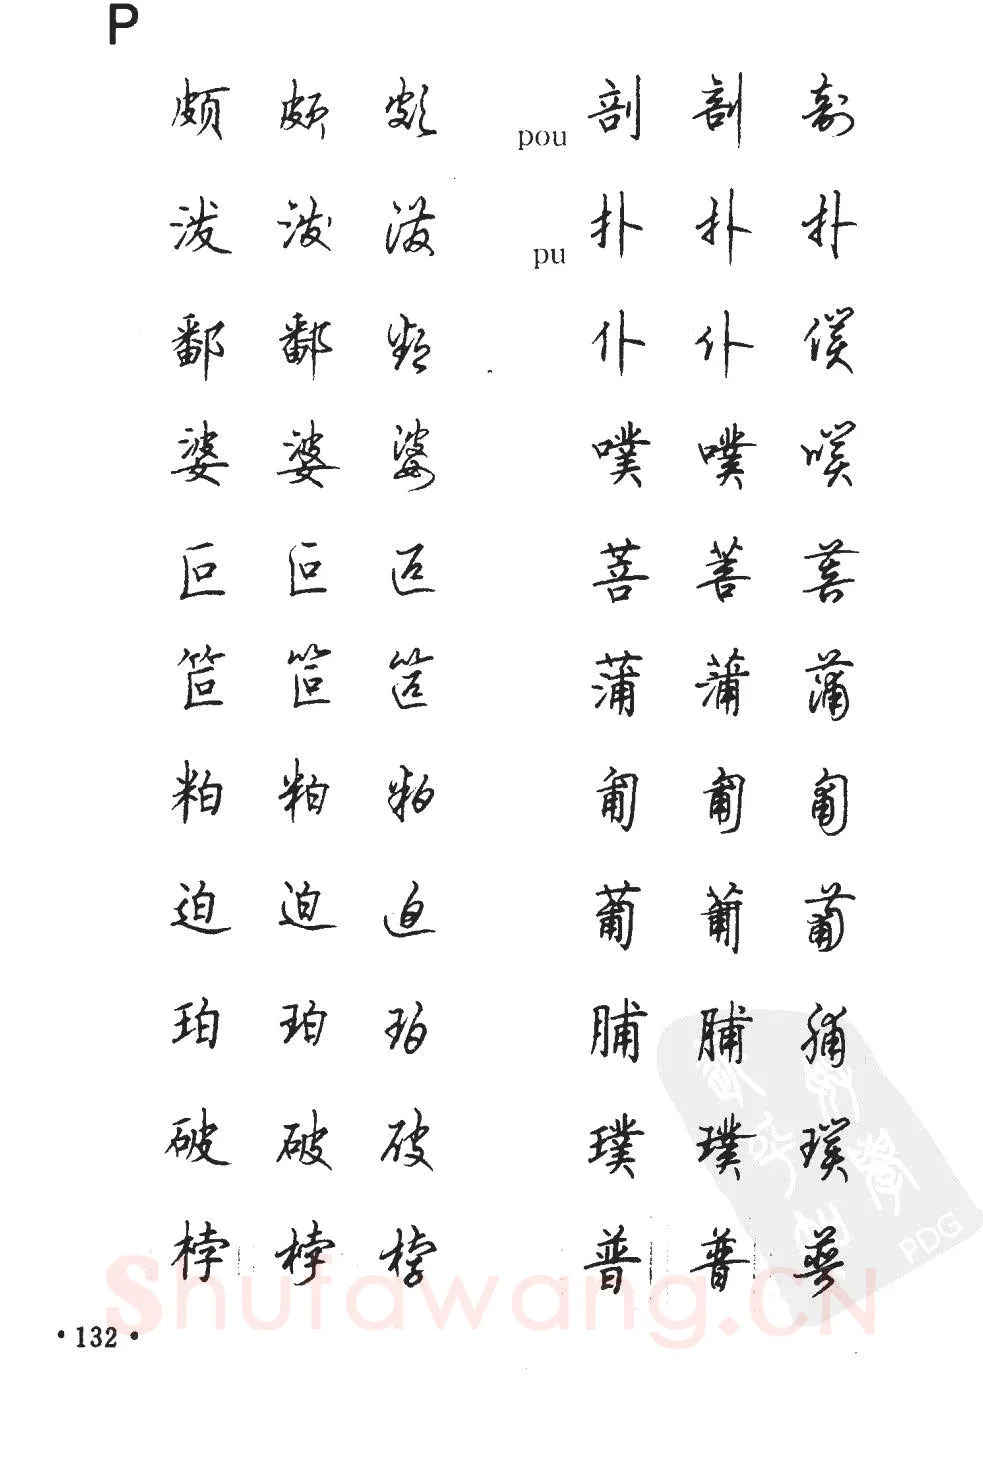 P
颇 颇 颇
泼 泼 泼
鄱 鄱 鄱
婆 婆 婆
叵 叵 叵
笸 笸 笸
粕 粕 粕
迫 迫 迫
珀 珀 珀
破 破 破
桲 桲 桲
pou 剖 剖 剖
pu 扑 扑 扑
仆 仆 僕
噗 噗 噗
菩 菩 菩
蒲 蒲 蒲
匍 匍 匍
葡 葡 葡
脯 脯 脯
璞 璞 璞
普 普 普
Shufawang.CN
PDG
·132·